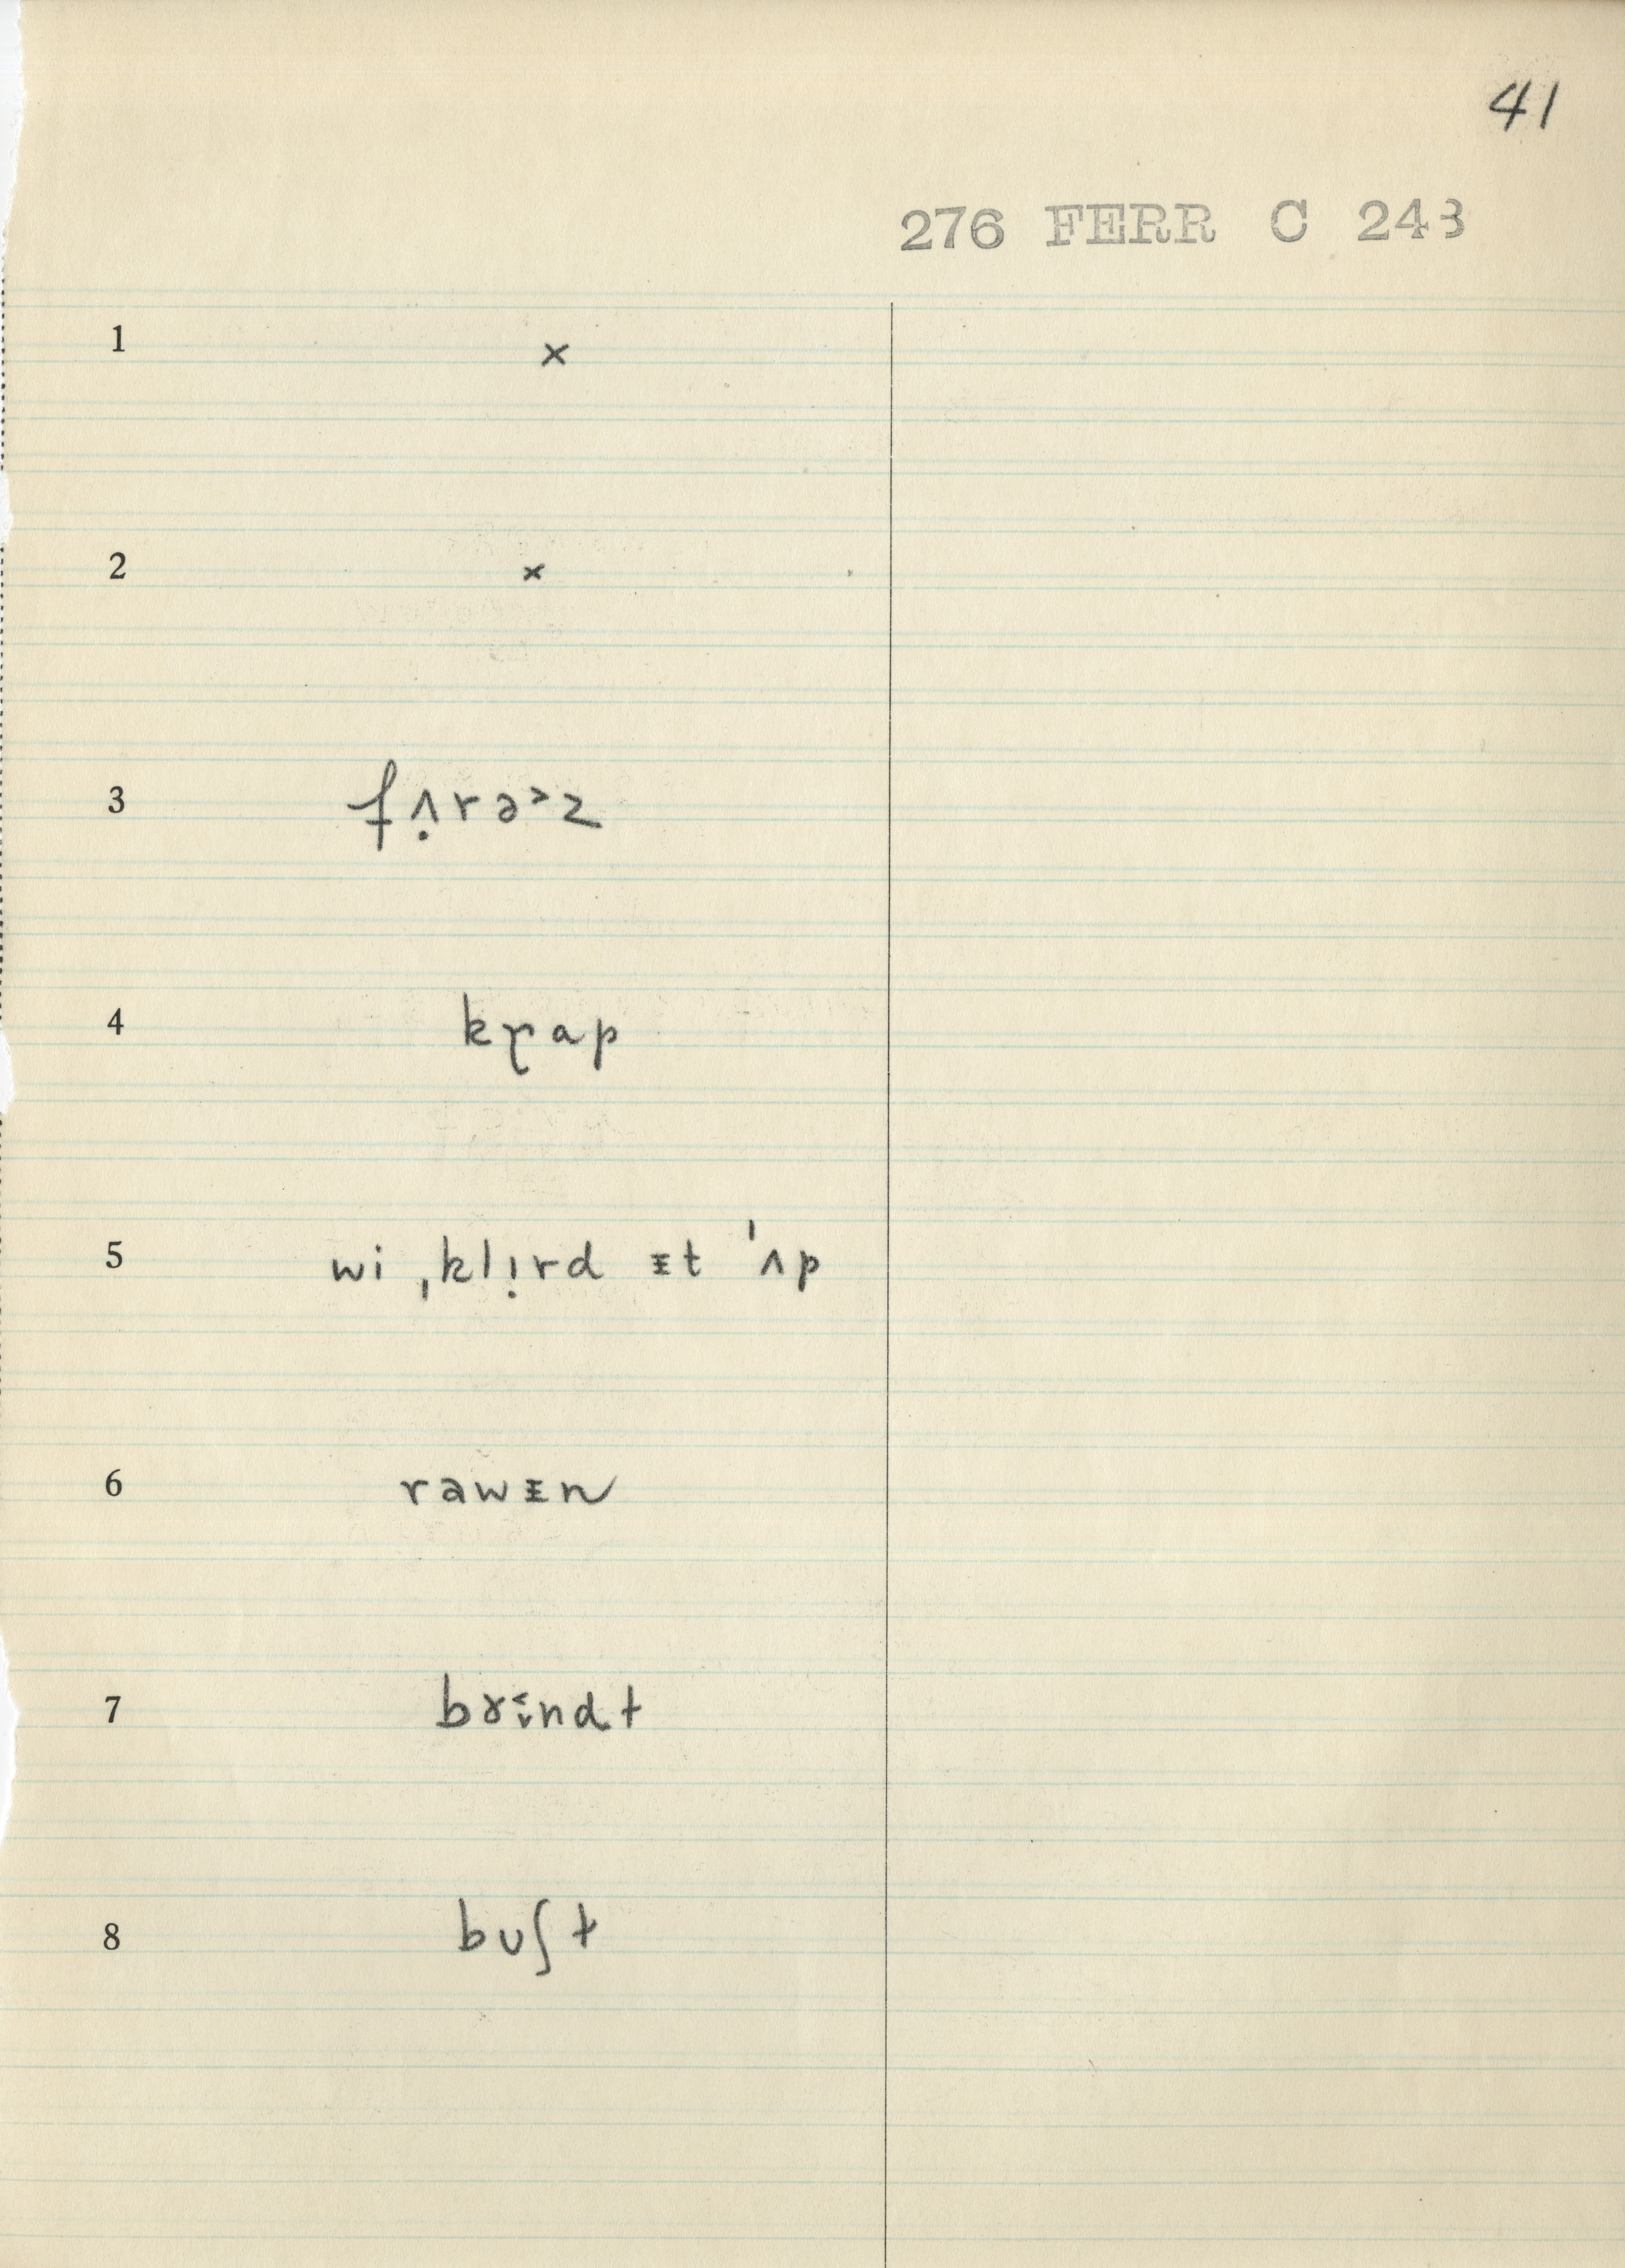 41
276 FERR C 243
1 ×
2 ×
3 fʌ̣rə˃z
4 kɽap
5 wi ˌklı̣rd ᵻt ˈʌp
6 rawᵻn
7 brɪ̈ndt
8 bʊʃt